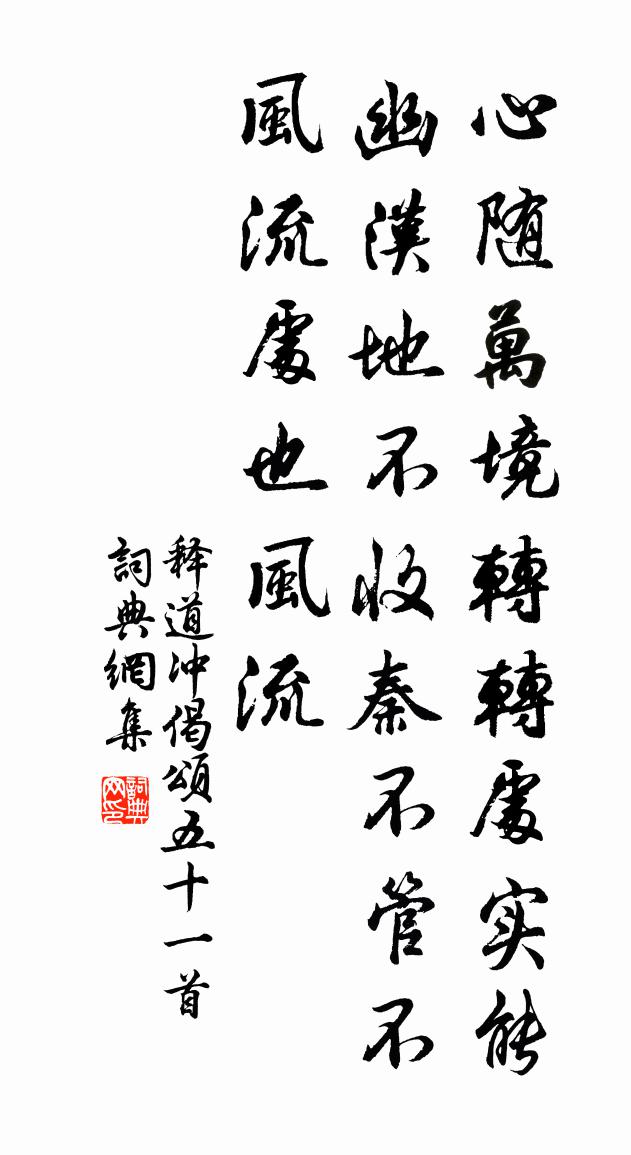 心随萬境轉轉處实能
幽漢地不收秦不管不
風流處也風流
释道冲偈頌五十一首
詞典網集
詞典
网印